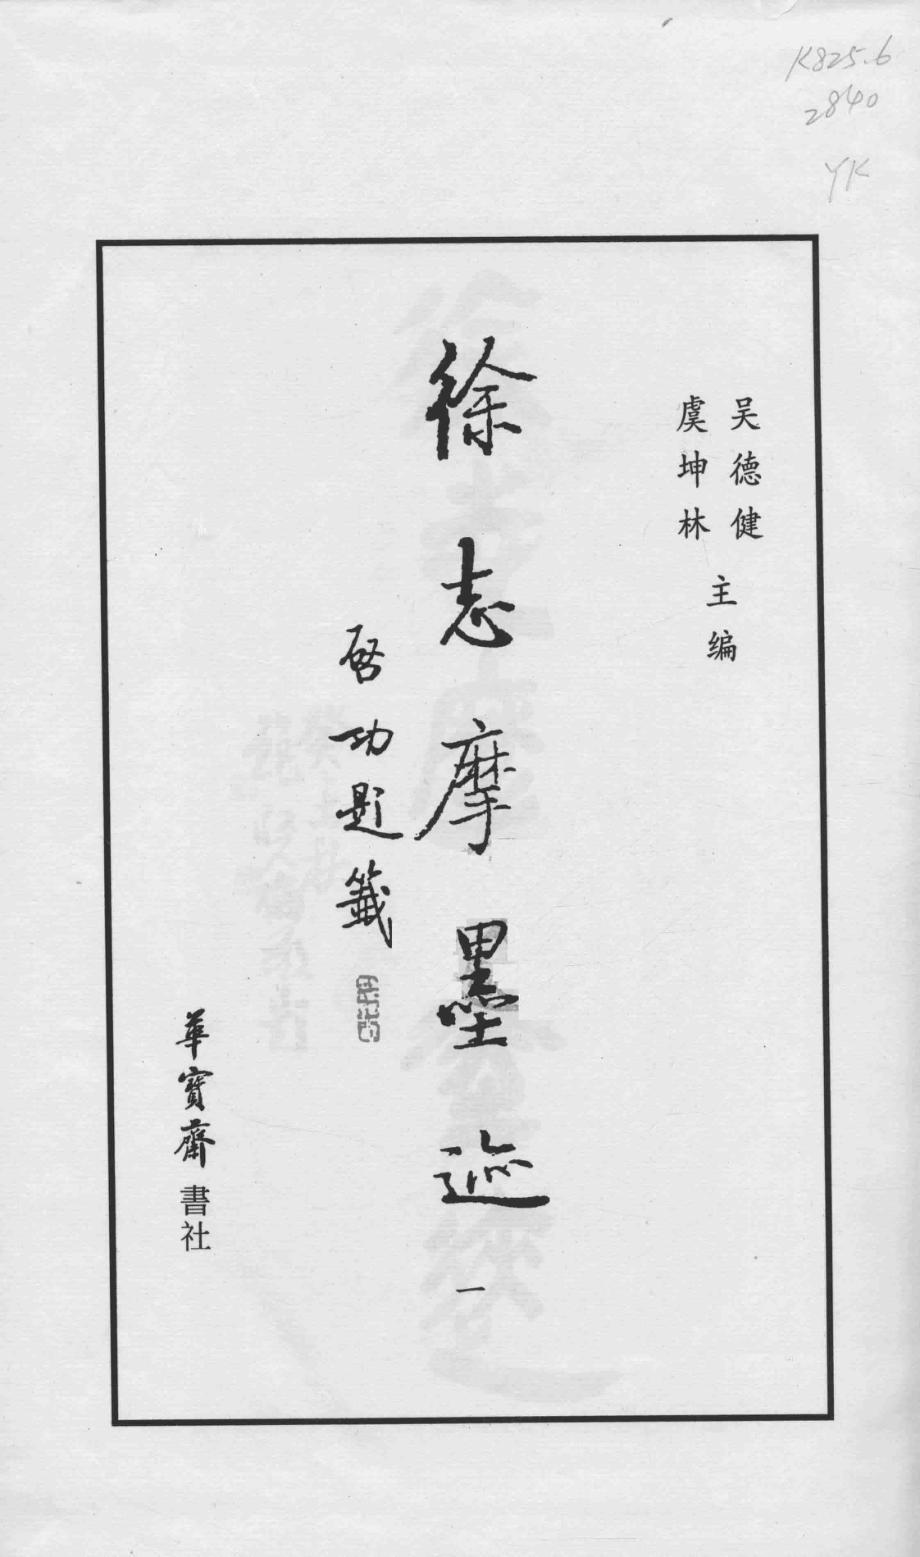 K825.6
2840
YK
吴德健
虞坤林
主编
徐志摩墨迹
一
启功题籤
華寳齋書社